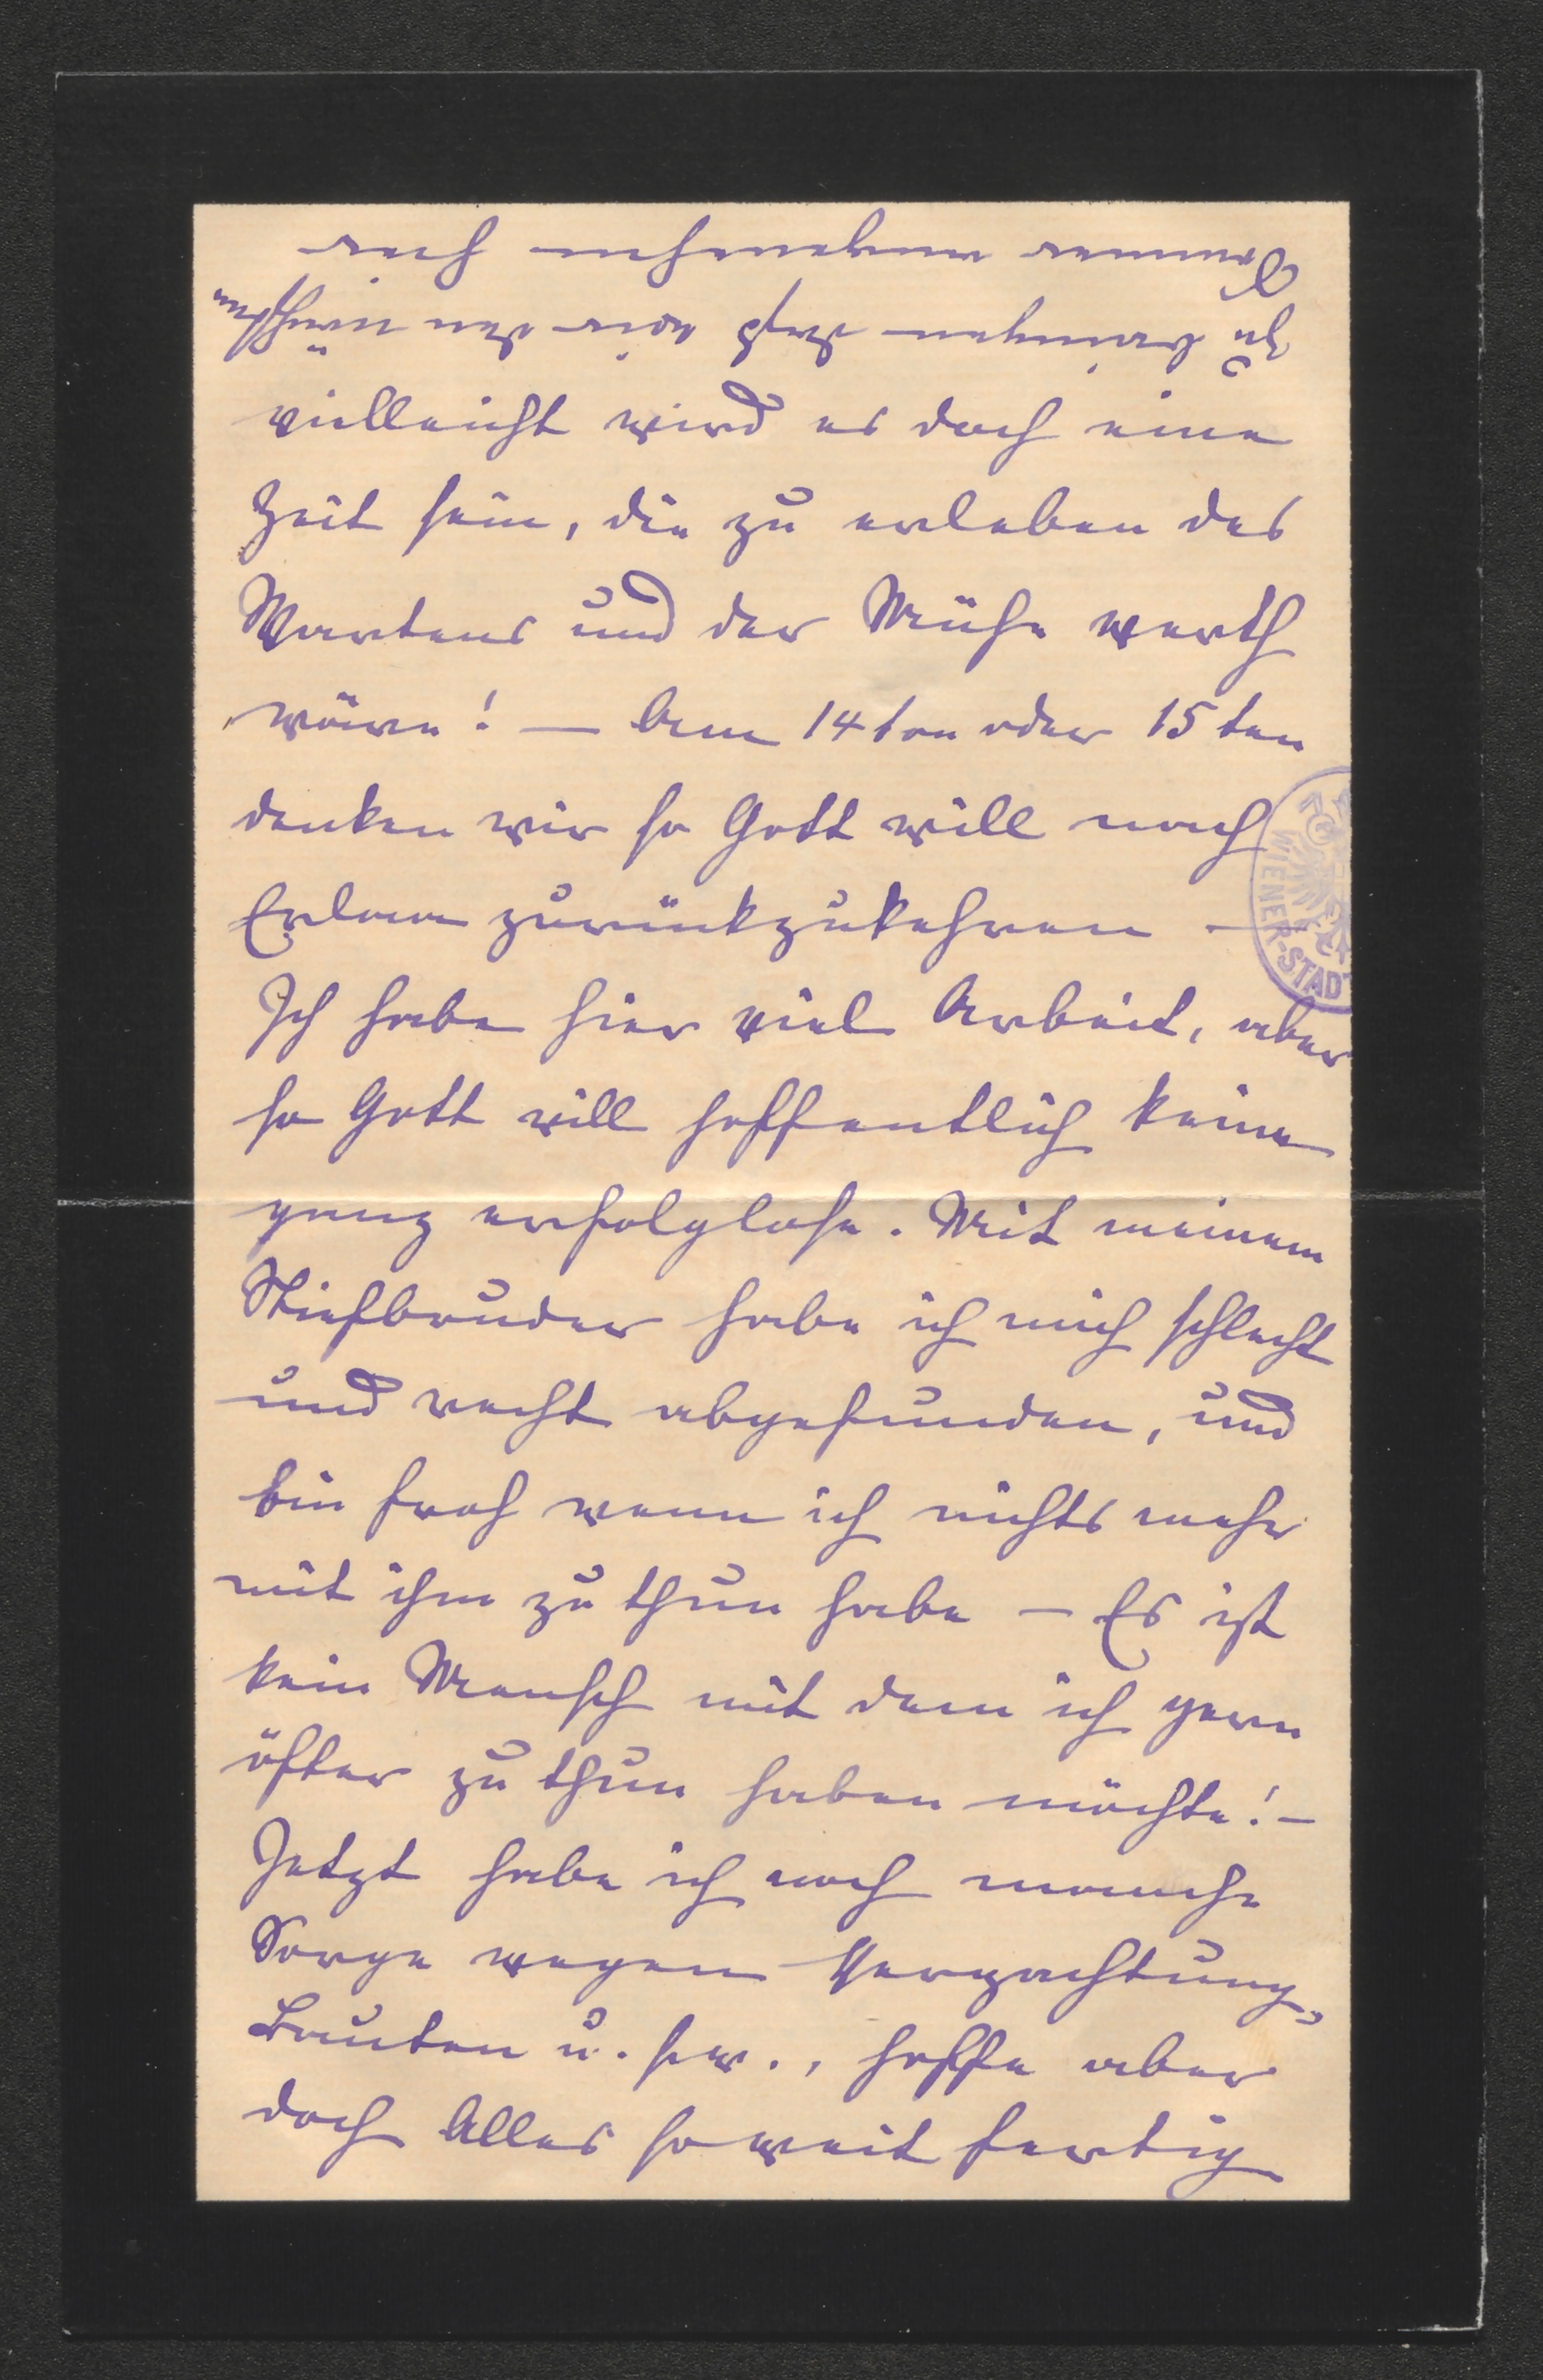 zu bringen daß wir den nächsten
Sommer angenehm hier
vielleicht wird es doch eine
Zeit sein, die zu erleben des
Wartens und der Mühe werth
wäre! — Am 14ten oder 15ten
denken wir so Gott will nach
Erlaa zurückzukehren —
Ich habe hier viel Arbeit, aber
so Gott will hoffentlich keine
ganz erfolglose. Mit meinem
Stiefbruder habe ich mich schlecht
und recht abgefunden, und
bin froh wenn ich nichts mehr
mit ihm zu thun habe — Es ist
kein Mensch mit dem ich gern
öfter zu thun haben möchte! —
Jetzt habe ich noch manche
Sorge wegen Verpachtung,
Bauten u. s. w., hoffe aber
doch Alles so weit fertig
WIENER-STADT